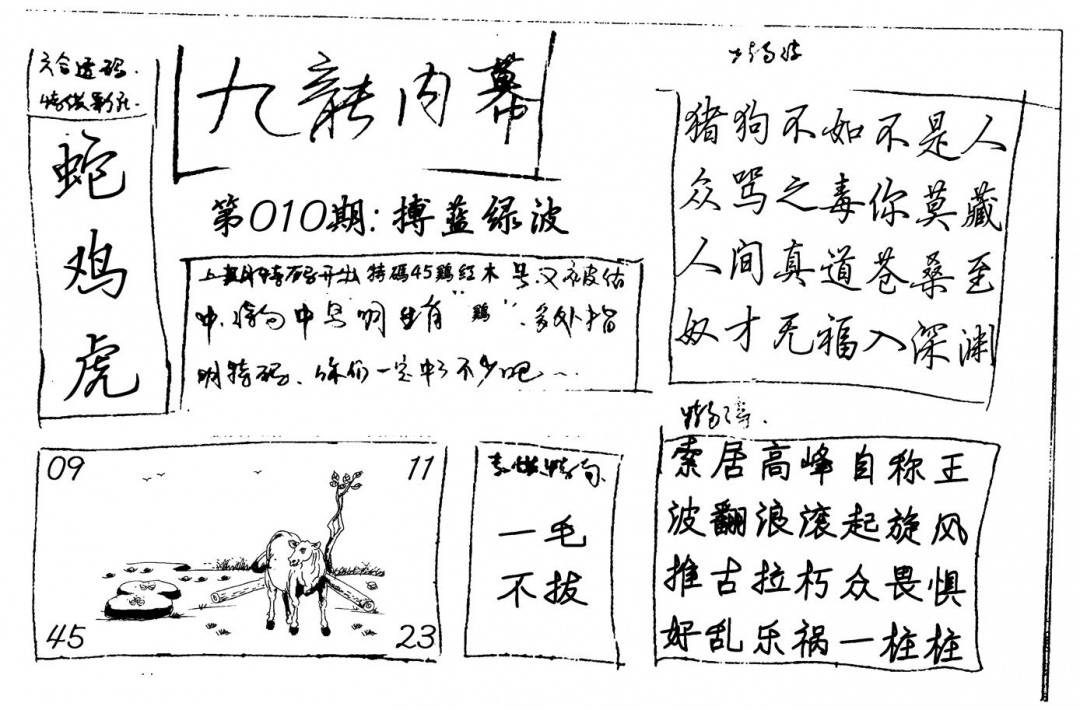 六合透码.
蛇
鸡
虎
九龍内幕
第010期:搏蓝绿波
上期特码开出特碼45鷄红木号又被估
中.诗句中早明出有“鷄”.多处指
明特码.你们一定中了不少吧...
猪狗不如不是人
众骂之毒你莫藏
人间真道苍桑至
奴才无福入深渊
09
11
45
23
一毛
不拔
索居高峰自称王
波翻浪滚起旋风
推古拉朽众畏惧
好乱乐祸一桩桩